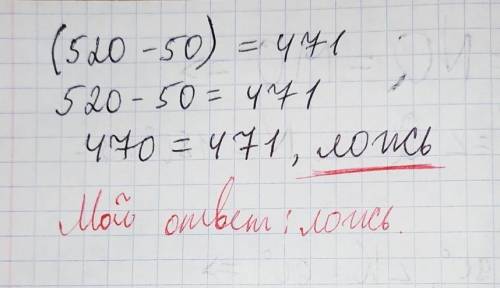 (520 - 50) = 471
520 - 50 = 471
470 = 471, ложь
Мой ответ: ложь.